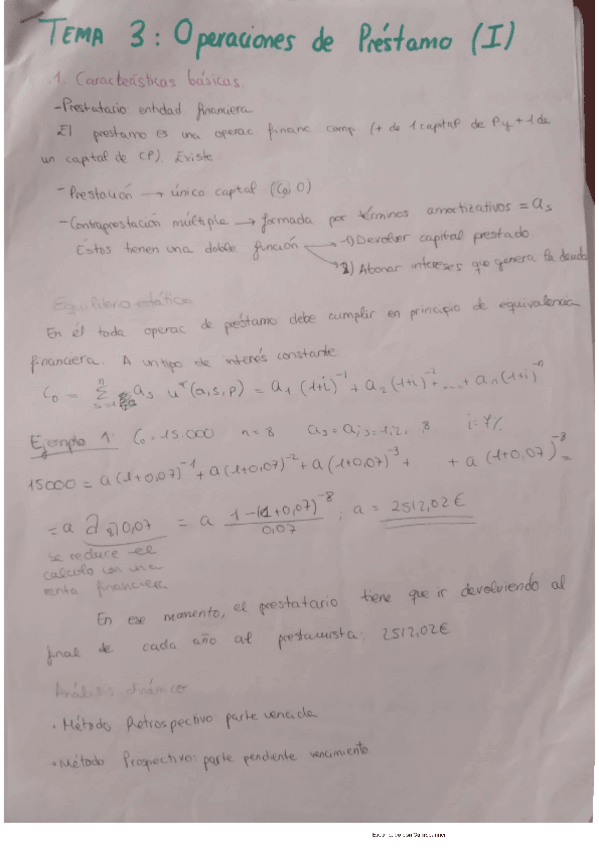 TEMA 3: Operaciones de Préstamo (I)
1. Características básicas.
-Prestatario entidad financiera
El prestamo es una operac financ comp (+ de 1 captal de P y + 1 de
un captal de CP). Existe
-Prestación → único captal (C0, 0)
-Contraprestación múltiple → formada por términos amortizativos = as
Éstos tienen una doble función → 1) Devolver capital prestado
2) Abonar intereses que genera la deuda
Equilibrio estático
En él toda operac de préstamo debe cumplir en principio de equivalencia
financiera. A un tipo de interés constante
C0 = Σ as u*(a,s,p) = a1 (1+i)^-1 + a2 (1+i)^-2 + ... + an (1+i)^-n
Ejemplo 1: C0 = 15.000 n = 8 as = a; s = 1,2, 8 i = 7%
15000 = a (1+0,07)^-1 + a (1+0,07)^-2 + a (1+0,07)^-3 + + a (1+0,07)^-8 =
= a a 8|0,07 = a 1-(1+0,07)^-8 / 0,07 ; a = 2512,02€
se reduce el
calculo con una
renta financiera
En ese momento, el prestatario tiene que ir devolviendo al
final de cada año al prestamista, 2512,02€
Análisis dinámico
· Método Retrospectivo parte vencida
· Método Prospectivo: parte pendiente vencimiento